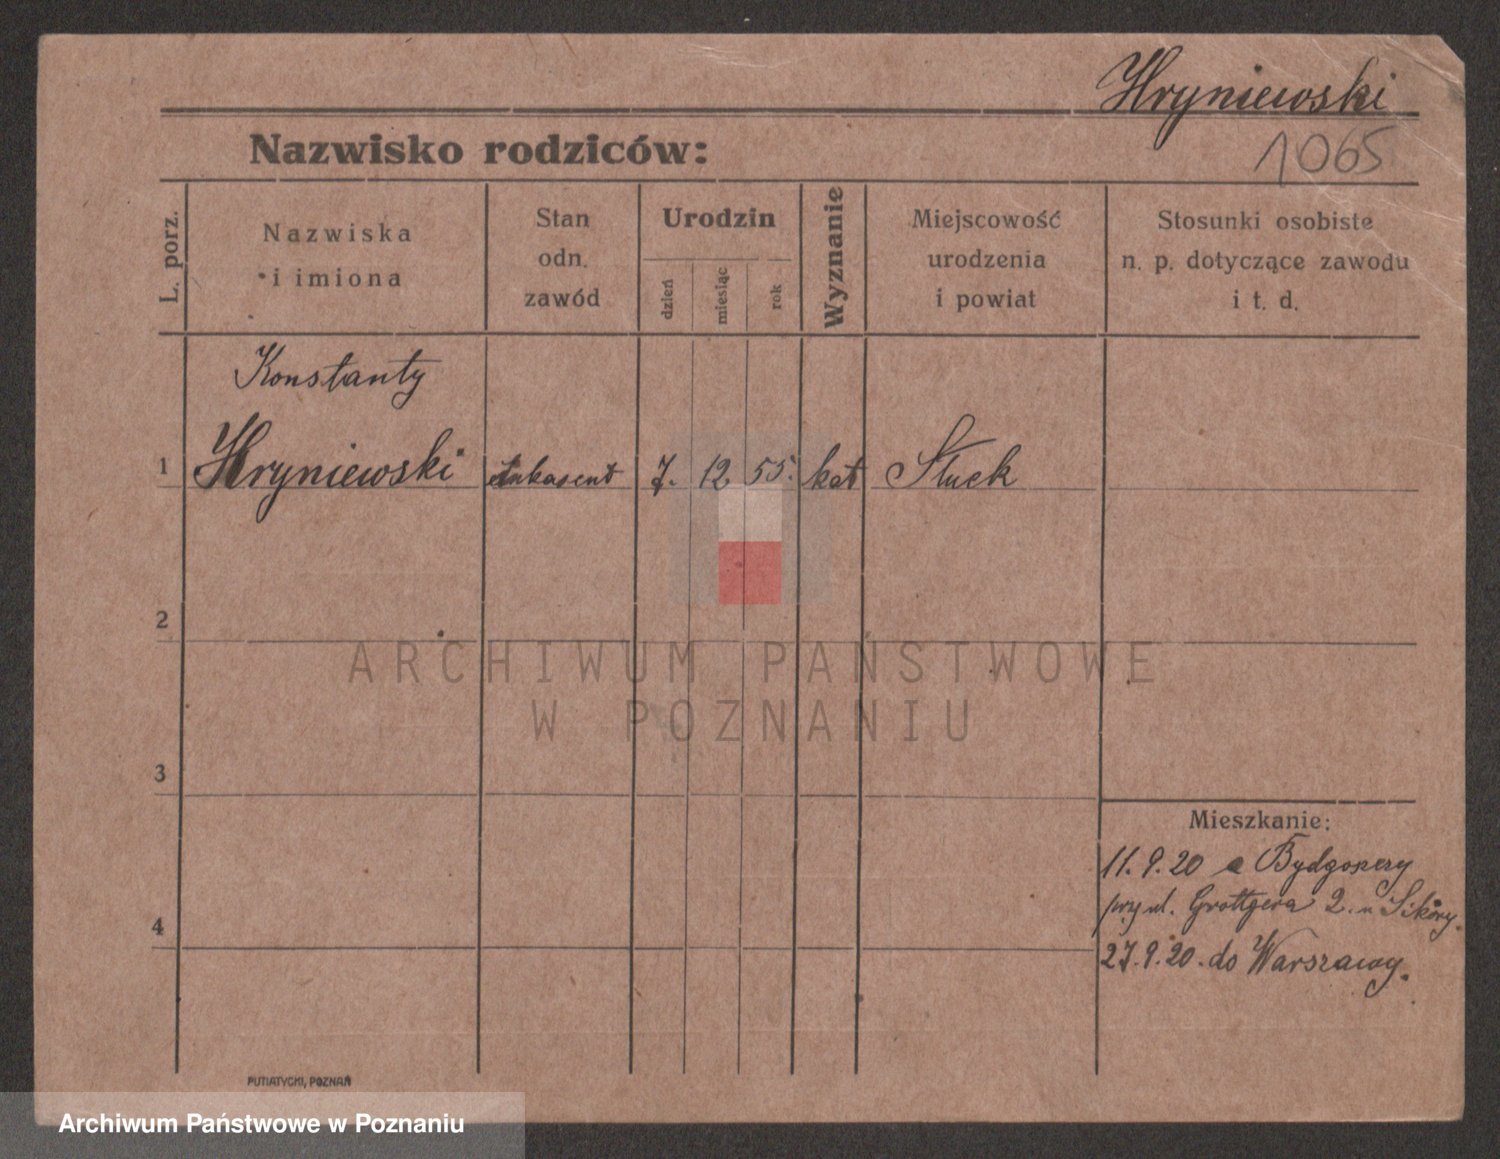 Hryniewski
1065
Nazwisko rodziców:
L. porz.
Nazwiska
i imiona
Stan
odn.
zawód
Urodzin
dzień
miesiąc
rok
Wyznanie
Miejscowość
urodzenia
i powiat
Stosunki osobiste
n. p. dotyczące zawodu
i t. d.
Konstanty
1 Hryniewski inkasent 7. 12. 55. kat Słuck
2
3
4
ARCHIWUM PAŃSTWOWE
W POZNANIU
Mieszkanie:
11.9.20 Bydgoszczy
przy ul. Grottgera 2. u Sikory.
27.9.20. do Warszawy.
PUTIATYCKI, POZNAŃ
Archiwum Państwowe w Poznaniu